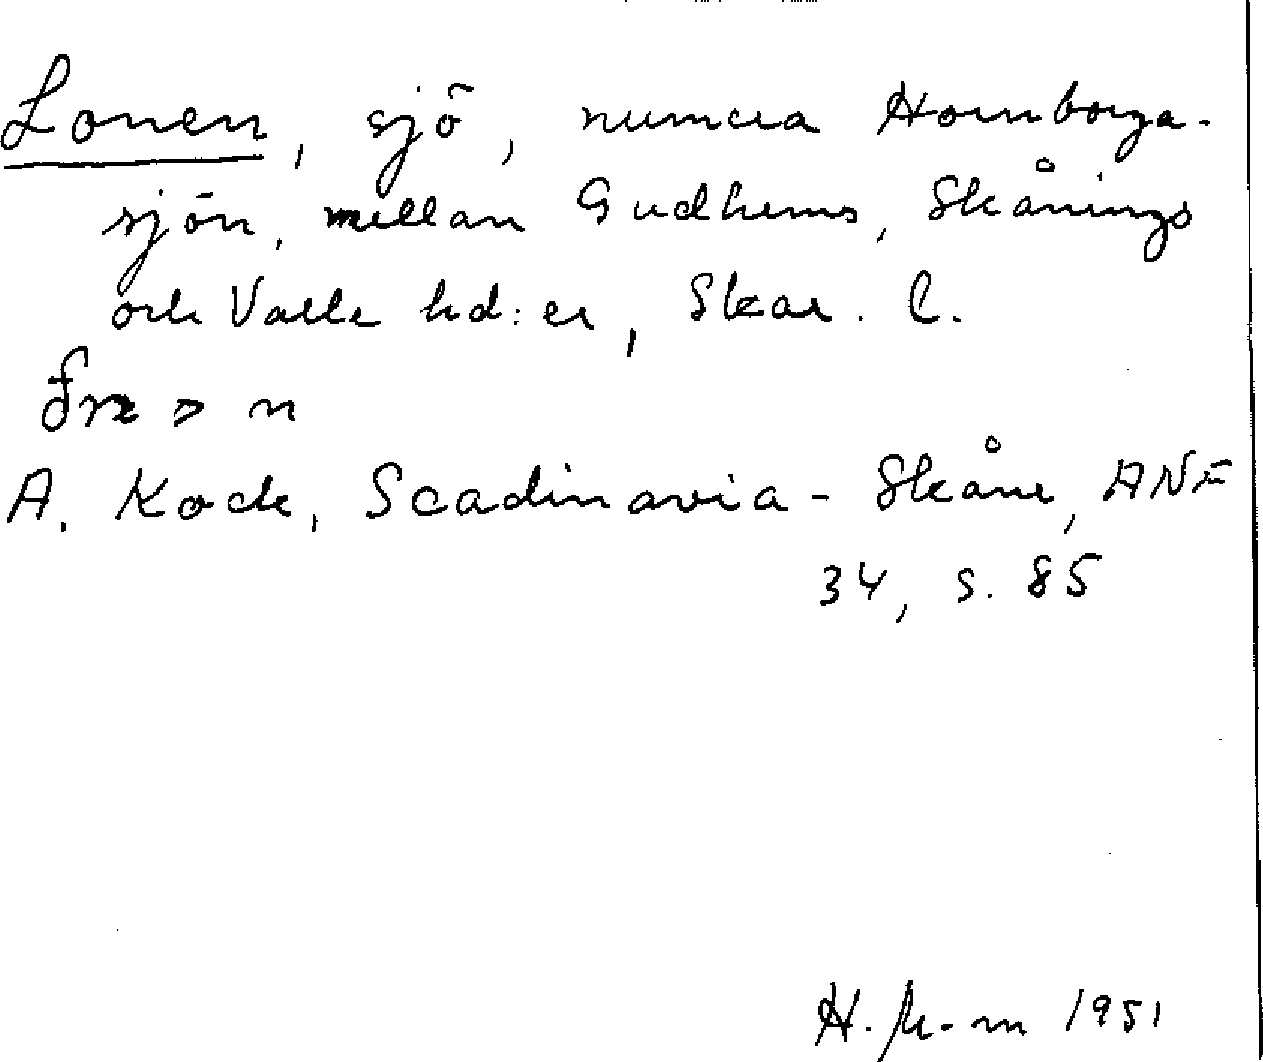 Lonen, sjö, numera Hornborga-
sjön, mellan Gudhems, Skånings
och Valle hd:er, Skar. l.
> n
A. Kock, Scadinavia - Skåne, ANF
34, s. 85
H. 1951